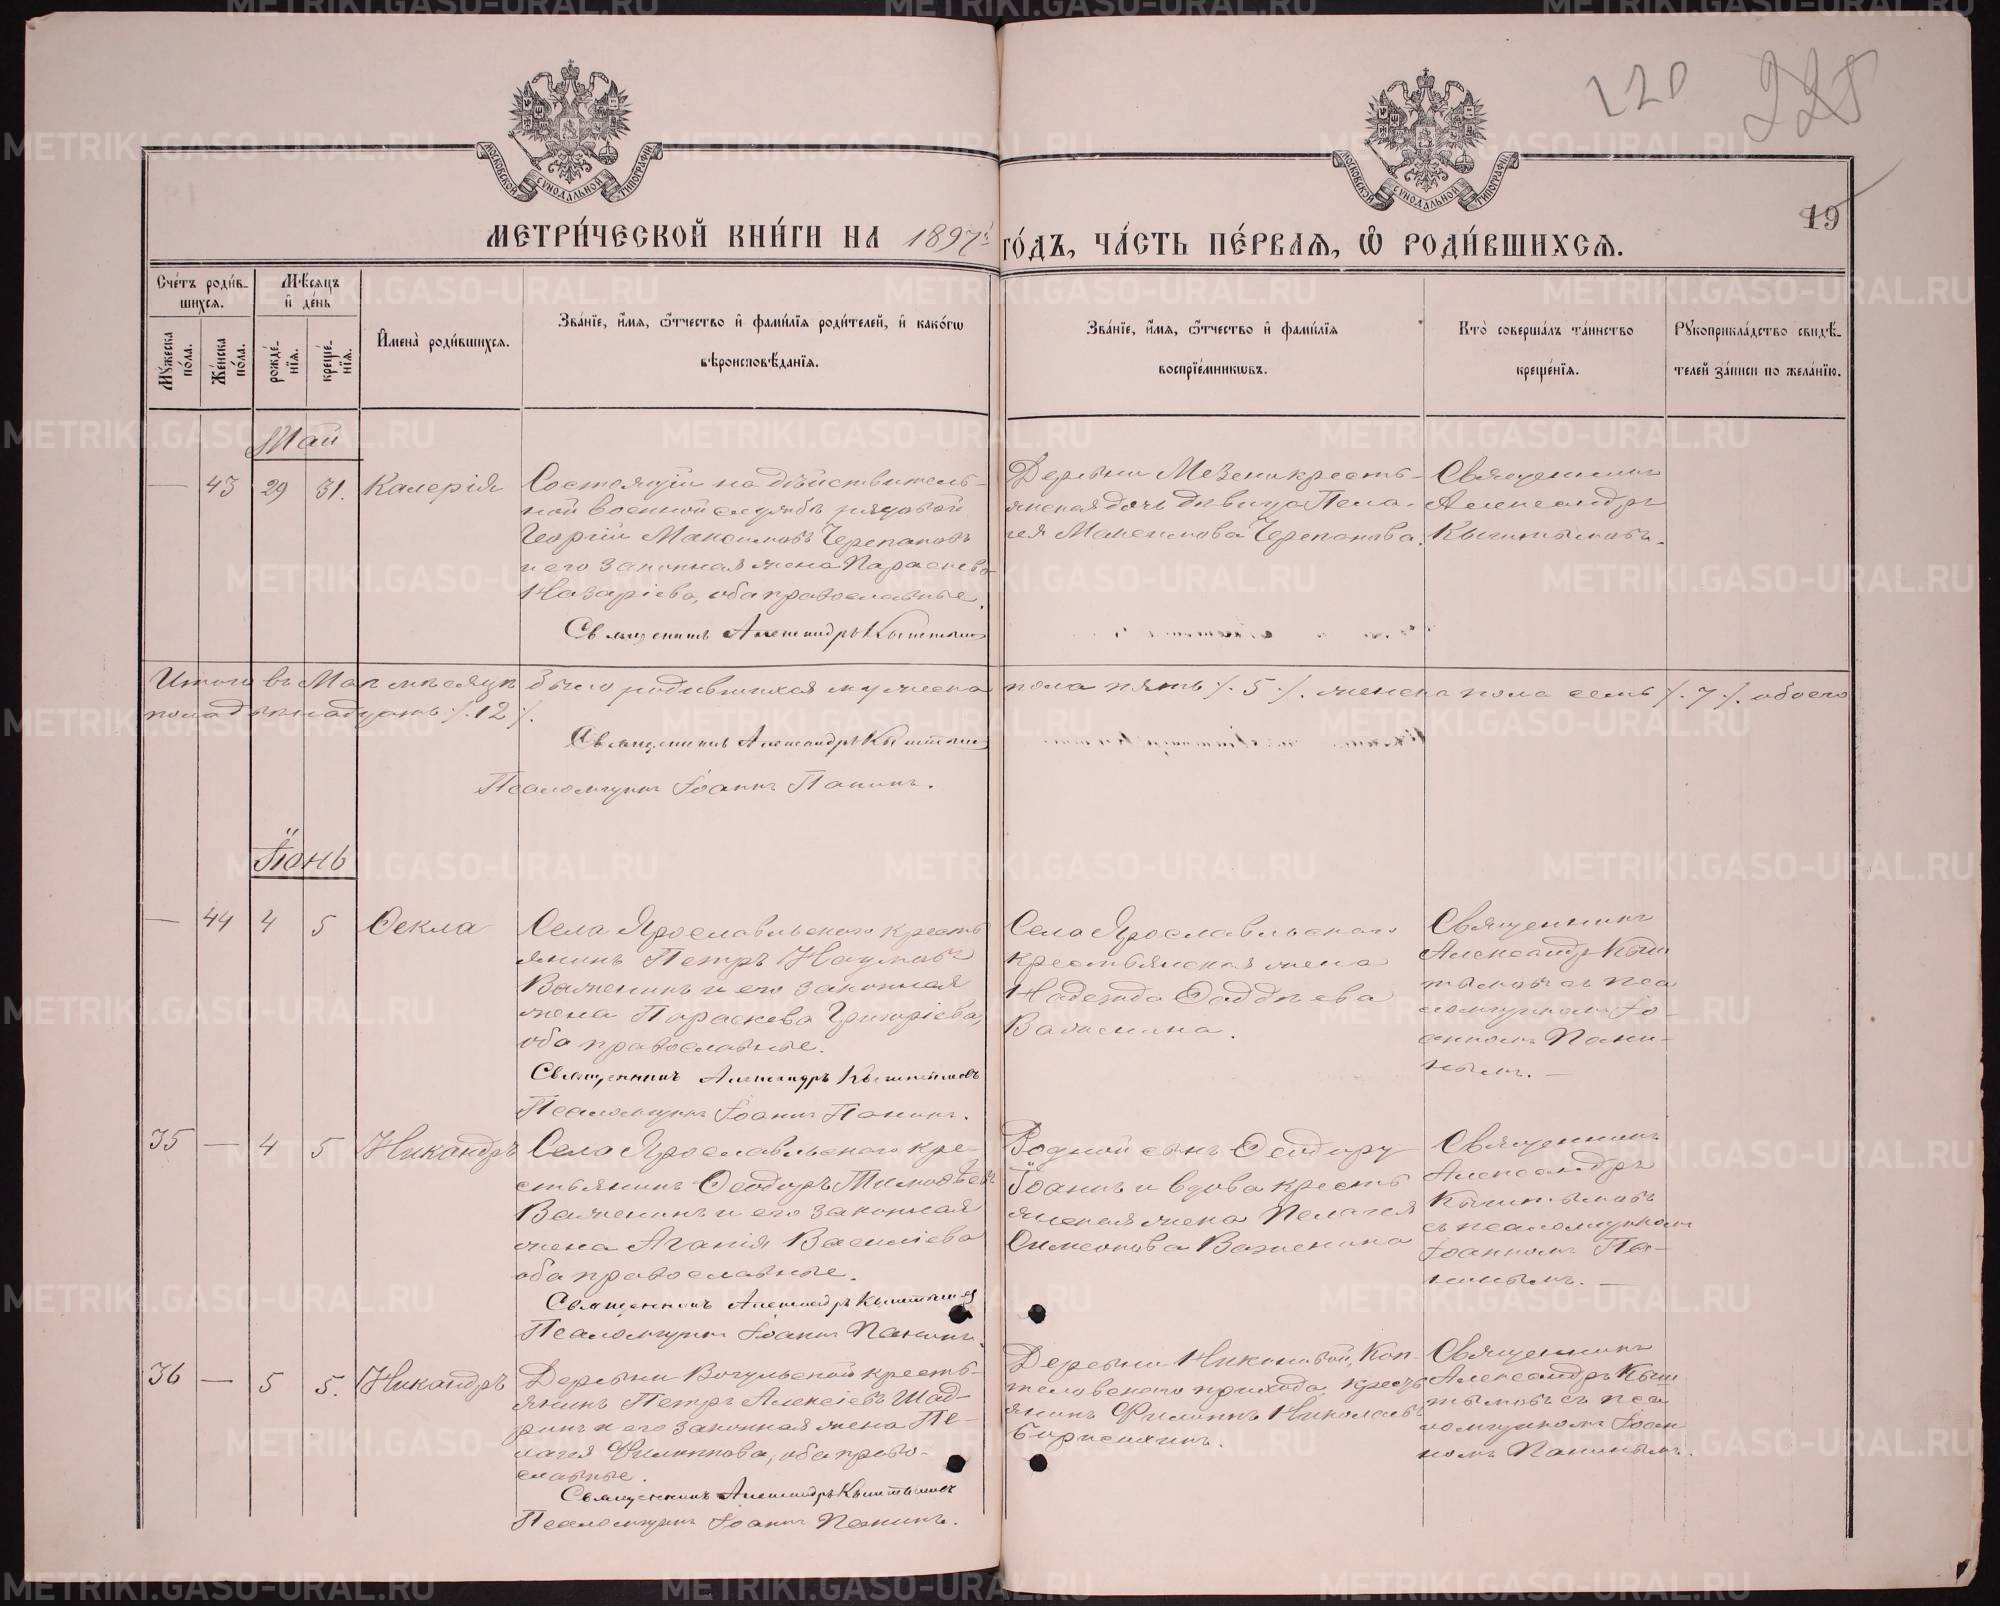 220
225
19
МОСКОВСКОЙ СУНОДАЛЬНОЙ ТИПОГРАФІИ
МОСКОВСКОЙ СУНОДАЛЬНОЙ ТИПОГРАФІИ
МЕТРИ́ЧЕСКОЙ КНИ́ГИ НА 1897й ГО́ДЪ, ЧА́СТЬ ПЕ́РВАЯ, Ѡ РОДИ́ВШИХСЯ.
Сче́тъ роди́в-
шихся.
Мꙋ́жеска по́ла.
Же́нска по́ла.
Мѣ́сяцъ
и де́нь
рожде́нїя.
креще́нїя.
Имена̀ роди́вшихся.
Зва́нїе, и́мя, ѻ́тчество и фами́лїя роди́телей, и како́гѡ
вѣроисповѣ́данїя.
Зва́нїе, и́мя, ѻ́тчество и фами́лїя
воспрїе́мникѡвъ.
Кто̀ соверша́лъ та́инство
креще́нїя.
Рꙋкоприкла́дство свидѣ́-
телей за́писи по жела́нїю.
Май
— 43 29 31. Калерія
Состоящій на дѣйствитель-
ной военной службѣ рядовой
Георгій Максимовъ Черепановъ
и его законная жена Параскева
Назаріева, оба православные.
Священникъ Александръ Кыштымовъ
Деревни Мезени кресть-
янская дочь дѣвица Пела-
гея Максимова Черепанова.
Священникъ
Александръ
Кыштымовъ.
Итого въ Маѣ мѣсяцѣ было родившихся мужеска пола пять /. 5 /. женска пола семь /. 7 /. обоего
пола двѣнадцать /. 12 /.
Священникъ Александръ Кыштымовъ
Псаломщикъ Іоаннъ Панинъ.
Іюнь
— 44 4 5 Ѳекла
Села Ярославльскаго кресть
янинъ Петръ Наумовъ
Важенинъ и его законная
жена Параскева Григоріева,
оба православные.
Священникъ Александръ Кыштымовъ
Псаломщикъ Іоаннъ Панинъ.
Села Ярославльскаго
крестьянская жена
Надежда Ѳаддѣева
Важенина.
Священникъ
Александръ Кыш
тымовъ съ пса
ломщикомъ Іо-
анномъ Пани-
нымъ. —
35 — 4 5 Никандръ
Села Ярославльскаго кре-
стьянинъ Ѳеодоръ Тимоѳѣевъ
Важенинъ и его законная
жена Агапія Василіева
оба православные.
Священникъ Александръ Кыштымовъ
Псаломщикъ Іоаннъ Панинъ.
Родной сынъ Ѳеодору
Іоаннъ и вдова кресть
янская жена Пелагея
Симеонова Важенина
Священникъ
Александръ
Кыштымовъ
съ псаломщикомъ
Іоанномъ Па-
нинымъ. —
36 — 5 5. Никандръ
Деревни Вогульской кресть-
янинъ Петръ Алексіевъ Шад-
ринъ и его законная жена Пе-
лагея Филиппова, оба право-
славные.
Священникъ Александръ Кыштымовъ
Псаломщикъ Іоаннъ Панинъ.
Деревни Никоновой, Коп-
теловскаго прихода, кресть
янинъ Филиппъ Николаевъ
Борисихинъ.
Священникъ
Александръ Кыш
тымовъ съ пса
ломщикомъ Іоан
номъ Панинымъ.
METRIKI.GASO-URAL.RU